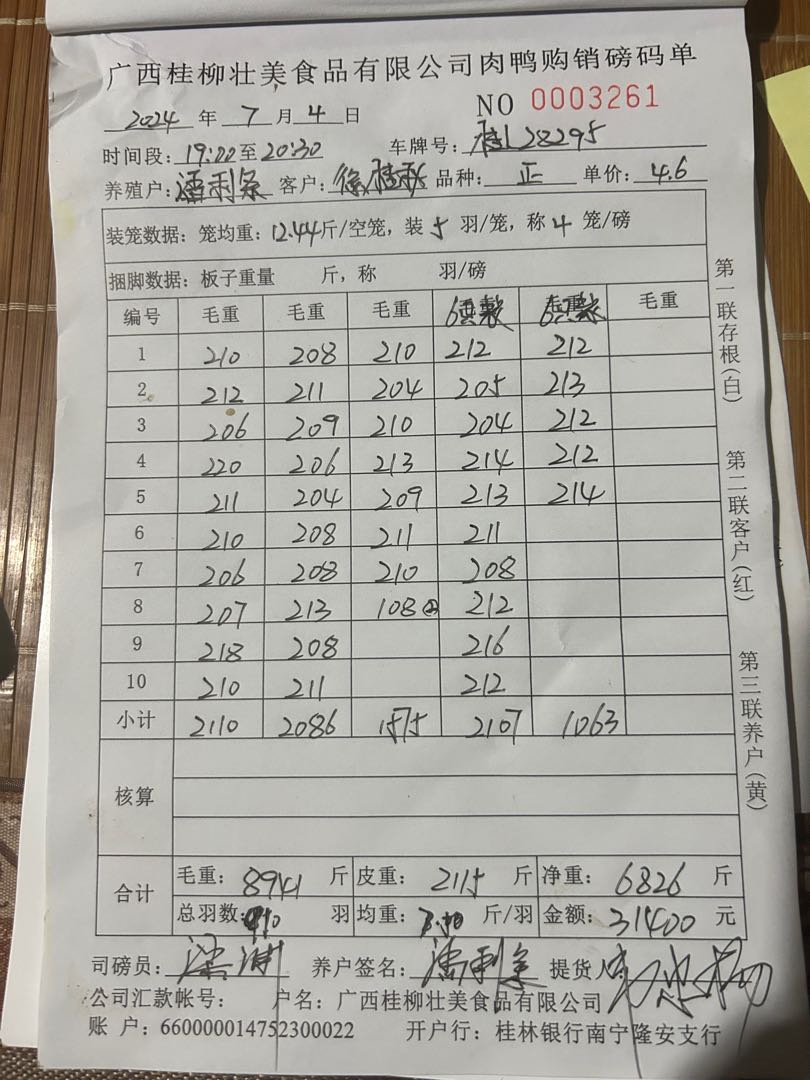 广西桂柳壮美食品有限公司肉鸭购销磅码单
NO 0003261
2024 年 7 月 4 日
时间段: 19:00 至 20:30 车牌号: 桂L28295
养殖户: 潘利条 客户: 徐桂秋 品种: 正 单价: 4.6
装笼数据: 笼均重: 12.44 斤/空笼, 装 5 羽/笼, 称 4 笼/磅
捆脚数据: 板子重量 斤, 称 羽/磅
编号 毛重 毛重 毛重 毛重
1 210 208 210 212 212
2 212 211 204 205 213
3 206 209 210 204 212
4 220 206 213 214 212
5 211 204 209 213 214
6 210 208 211 211
7 206 208 210 208
8 207 213 108 ② 212
9 218 208 216
10 210 211 212
小计 2110 2086 1575 2107 1063
核算
合计
毛重: 8941 斤 皮重: 2115 斤 净重: 6826 斤
总羽数: 羽 均重: 斤/羽 金额: 31400 元
司磅员: 养户签名: 潘利条 提货人:
公司汇款帐号: 户名: 广西桂柳壮美食品有限公司
账 户: 660000014752300022 开户行: 桂林银行南宁隆安支行
第一联存根(白)
第二联客户(红)
第三联养户(黄)